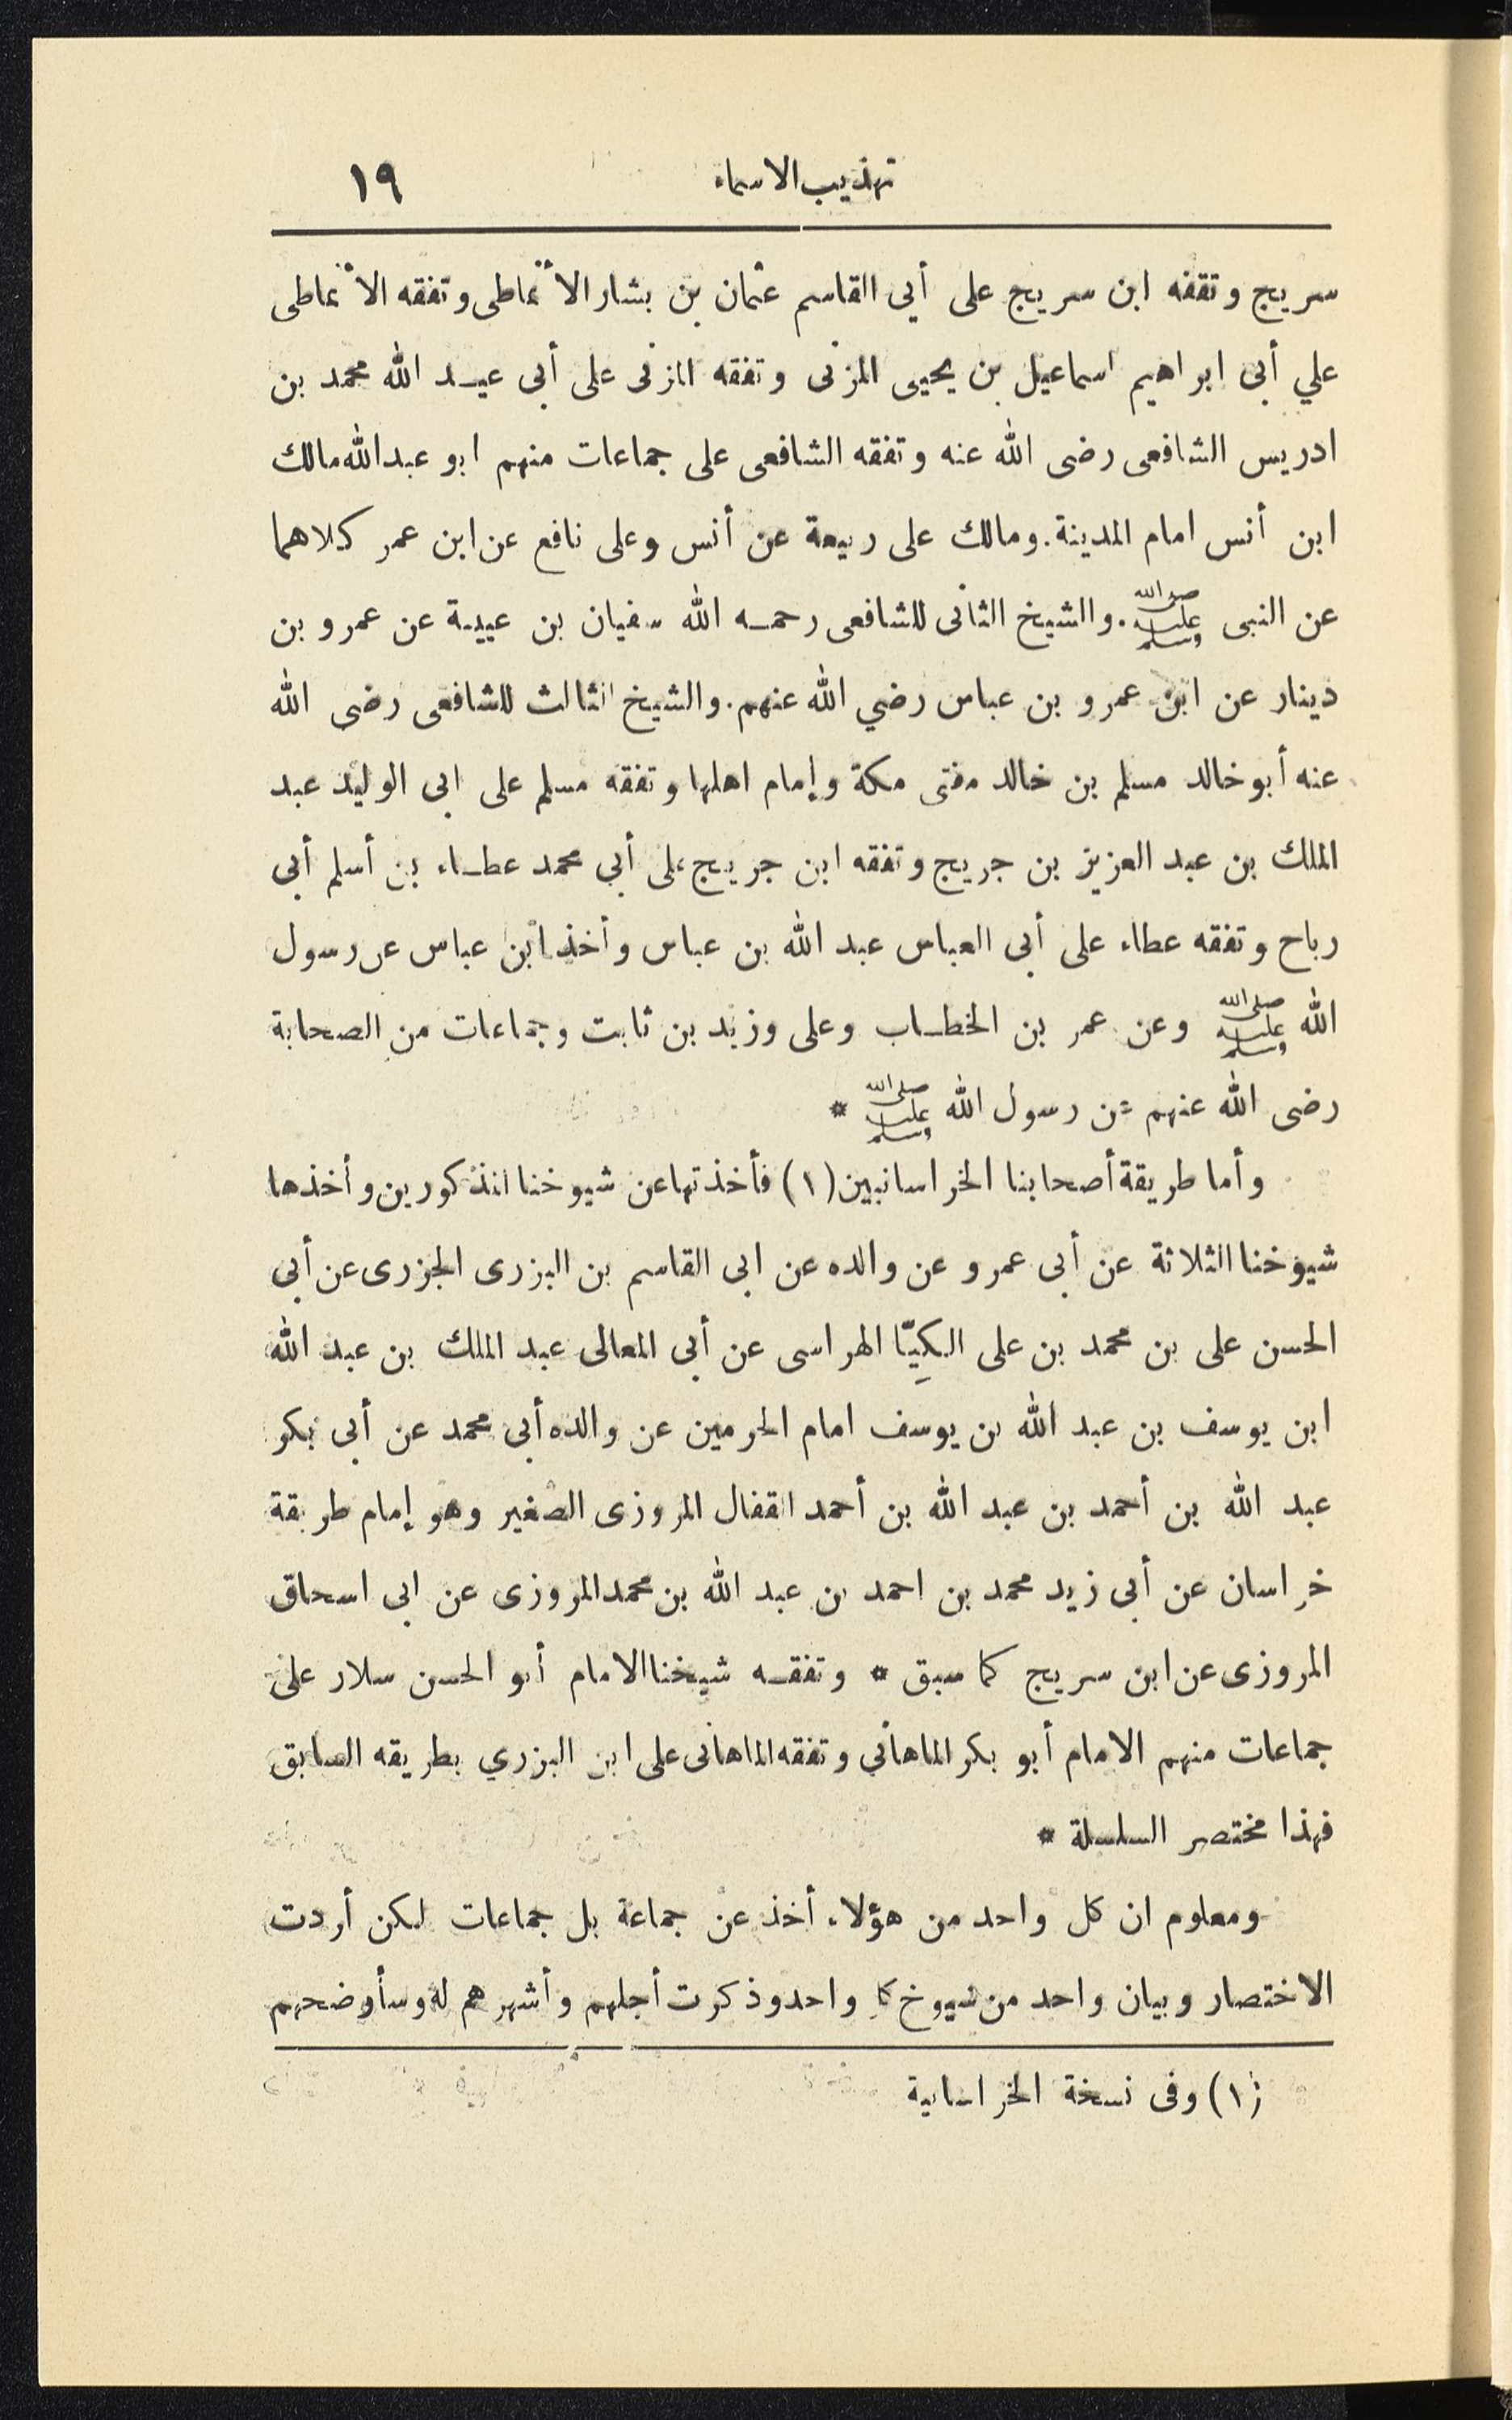 تهذيب الاسماء ١٩
سريج وتفقه ابن سريج على أبي القاسم عثمان بن بشار الأنماطى وتفقه الانماطى
علي أبى ابراهيم اسماعيل بن يحيى المزنى وتفقه المزنى على أبى عبد الله محمد بن
ادريس الشافعى رضى الله عنه وتفقه الشافعى على جماعات منهم ابو عبدالله مالك
ابن أنس امام المدينة. ومالك على ربيعة عن أنس وعلى نافع عن ابن عمر كلاهما
عن النبى صلى الله عليه وسلم. والشيخ الثانى للشافعى رحمه الله سفيان بن عيينة عن عمرو بن
دينار عن ابن عمرو بن عباس رضي الله عنهم. والشيخ الثالث للشافعى رضى الله
عنه أبو خالد مسلم بن خالد مفتى مكة وإمام اهلها وتفقه مسلم على ابى الوليد عبد
الملك بن عبد العزيز بن جريج وتفقه ابن جريج على أبي محمد عطاء بن أسلم أبى
رباح وتفقه عطاء على أبى العباس عبد الله بن عباس وأخذ ابن عباس عن رسول
الله صلى الله عليه وسلم وعن عمر بن الخطاب وعلى وزيد بن ثابت وجماعات من الصحابة
رضى الله عنهم عن رسول الله صلى الله عليه وسلم *
وأما طريقة أصحابنا الخراسانيين (١) فأخذتها عن شيوخنا المذكورين وأخذها
شيوخنا الثلاثة عن أبى عمرو عن والده عن ابى القاسم بن البزرى الجزرى عن أبي
الحسن على بن محمد بن على الكِيّا الهراسى عن أبى المعالى عبد الملك بن عبد الله
ابن يوسف بن عبد الله بن يوسف امام الحرمين عن والده أبى محمد عن أبى بكر
عبد الله بن أحمد بن عبد الله بن أحمد القفال المروزى الصغير وهو إمام طريقة
خراسان عن أبى زيد محمد بن احمد بن عبد الله بن محمد المروزى عن ابى اسحاق
المروزى عن ابن سريج كما سبق * وتفقه شيخنا الامام أبو الحسن سلار على
جماعات منهم الامام أبو بكر الماهاني وتفقه الماهانى على ابن البزري بطريقه السابق
فهذا مختصر السلسلة *
ومعلوم ان كل واحد من هؤلاء أخذ عن جماعة بل جماعات لكن أردت
الاختصار وبيان واحد من شيوخ كل واحد وذكرت أجلهم وأشهرهم له وسأوضحهم
(١) وفى نسخة الخراسانية